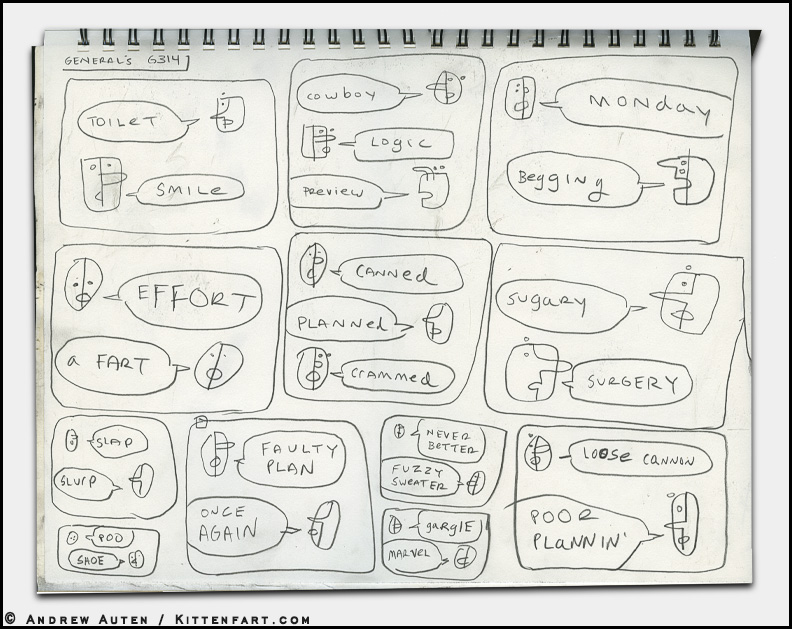 GENERAL'S G314
TOILET
SMILE
COWBOY
LOGIC
PREVIEW
MONDAY
BEGGING
EFFORT
A FART
CANNED
PLANNED
CRAMMED
SUGARY
SURGERY
SLAP
SLURP
POO
SHOE
FAULTY
PLAN
ONCE
AGAIN
NEVER
BETTER
FUZZY
SWEATER
GARGLE
MARVEL
LOOSE CANNON
POOR
PLANNIN'
© ANDREW AUTEN / KITTENFART.COM